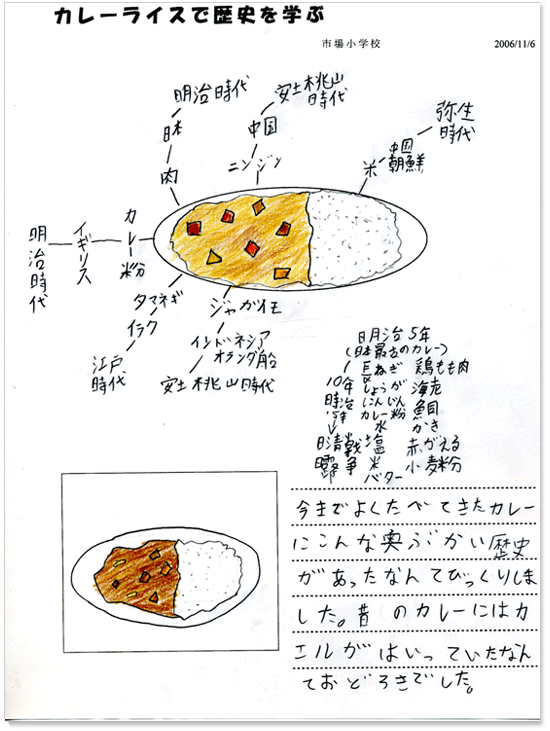 カレーライスで歴史を学ぶ
市場小学校
2006/11/6
明治時代
日本
肉
安土桃山
時代
中国
ニンジン
弥生
時代
中国
朝鮮
米
カレー粉
イギリス
明治時代
タマネギ
イラク
江戸
時代
ジャガイモ
インドネシア
オランダ船
安土桃山時代
明治5年
(日本最古のカレー)
ねぎ 鶏もも肉
10年 しょうが 海老
時治 にんじん 鯛
カレー粉 かき
水
日清戦 塩 赤がえる
露争 米 小麦粉
バター
今までよくたべてきたカレー
にこんな奥ぶかい歴史
があったなんてびっくりしま
した。昔のカレーにはカ
エルがはいっていたなん
ておどろきでした。